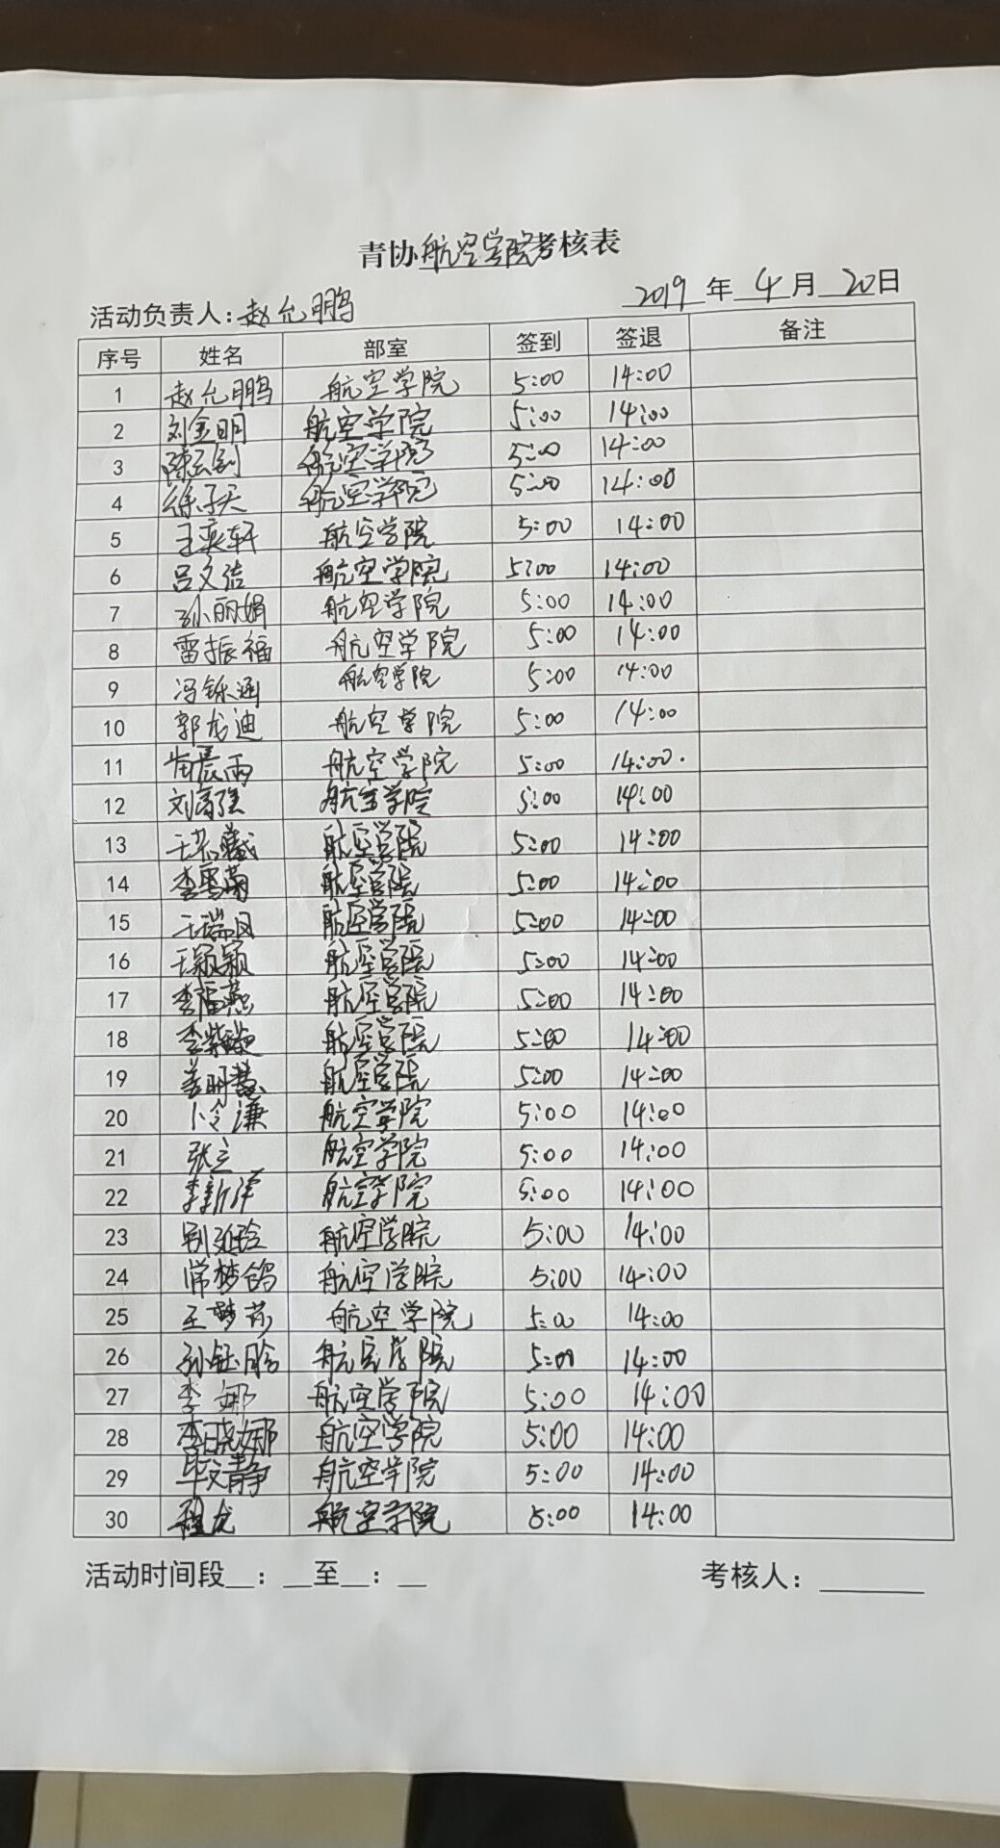 青协航空学院考核表
活动负责人:赵允鹏 2019年4月20日
序号 姓名 部室 签到 签退 备注
1 赵允鹏 航空学院 5:00 14:00
2 刘金明 航空学院 5:00 14:00
3 航空学院 5:00 14:00
4 徐子天 航空学院 5:00 14:00
5 王奕轩 航空学院 5:00 14:00
6 吕文洁 航空学院 5:00 14:00
7 孙丽娟 航空学院 5:00 14:00
8 雷振福 航空学院 5:00 14:00
9 航空学院 5:00 14:00
10 郭龙迪 航空学院 5:00 14:00
11 航空学院 5:00 14:00.
12 航空学院 5:00 14:00
13 航空学院 5:00 14:00
14 航空学院 5:00 14:00
15 航空学院 5:00 14:00
16 王颖颖 航空学院 5:00 14:00
17 李福燕 航空学院 5:00 14:00
18 航空学院 5:00 14:00
19 姜明慧 航空学院 5:00 14:00
20 卜令谦 航空学院 5:00 14:00
21 张立 航空学院 5:00 14:00
22 李新洋 航空学院 5:00 14:00
23 航空学院 5:00 14:00
24 常梦鸽 航空学院 5:00 14:00
25 王梦莎 航空学院 5:00 14:00
26 孙钰晗 航空学院 5:00 14:00
27 李娜 航空学院 5:00 14:00
28 李晓娜 航空学院 5:00 14:00
29 毕文静 航空学院 5:00 14:00
30 程龙 航空学院 5:00 14:00
活动时间段__:__至__:__ 考核人:______